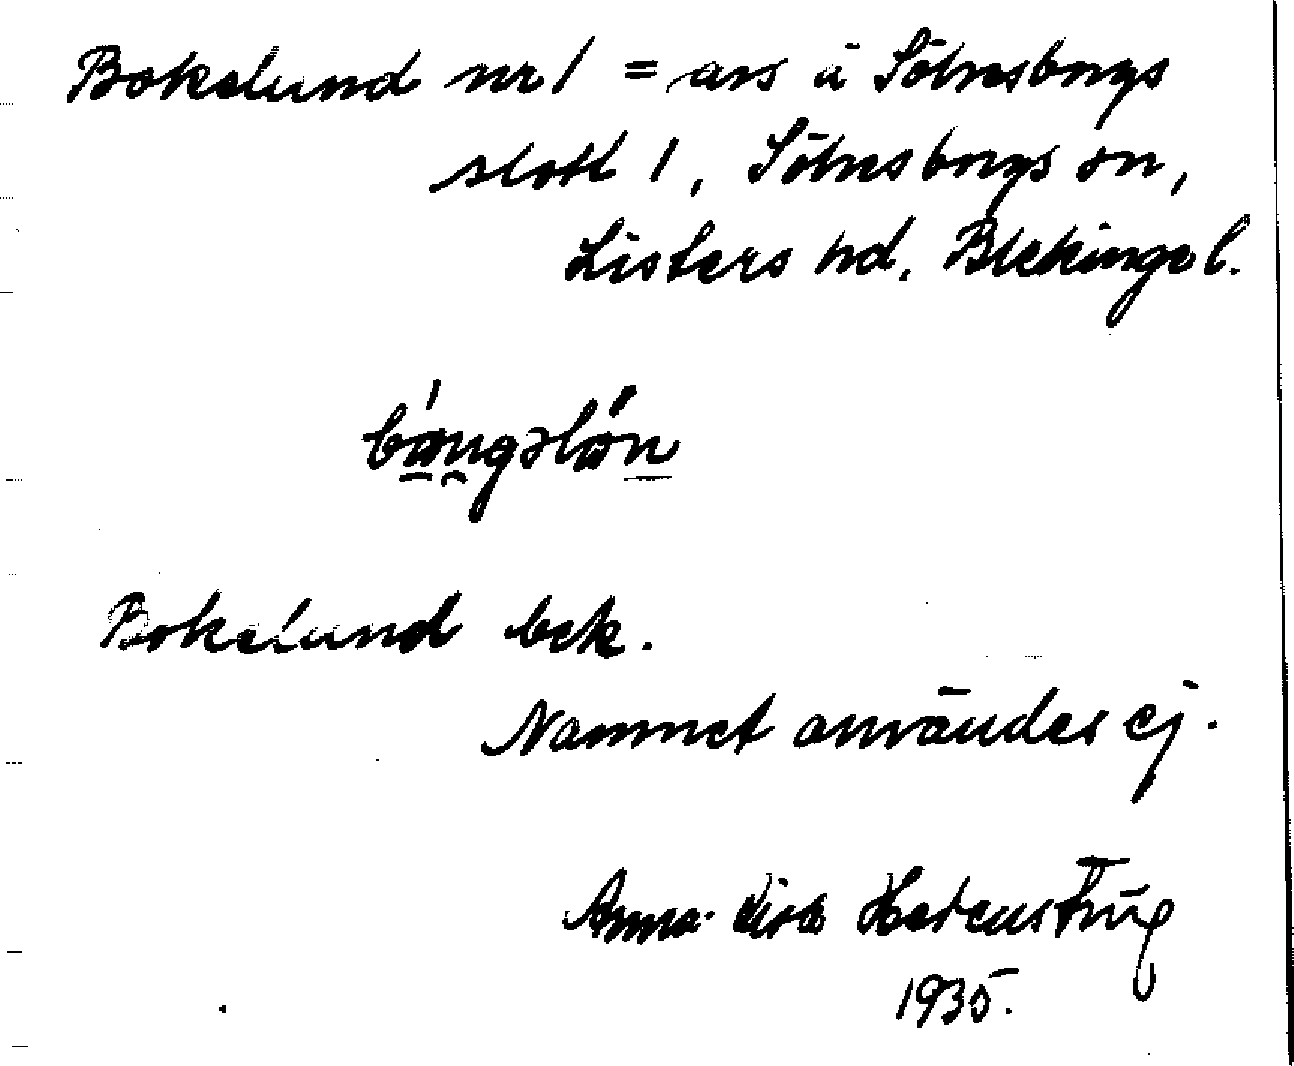 Bokelund nr 1 = avs å Sölvesborgs
slott 1, Sölvesborgs sn,
Listers hd, Blekinge l.
Bokelund bek.
Namnet användes ej.
Anna-Lisa
1935.